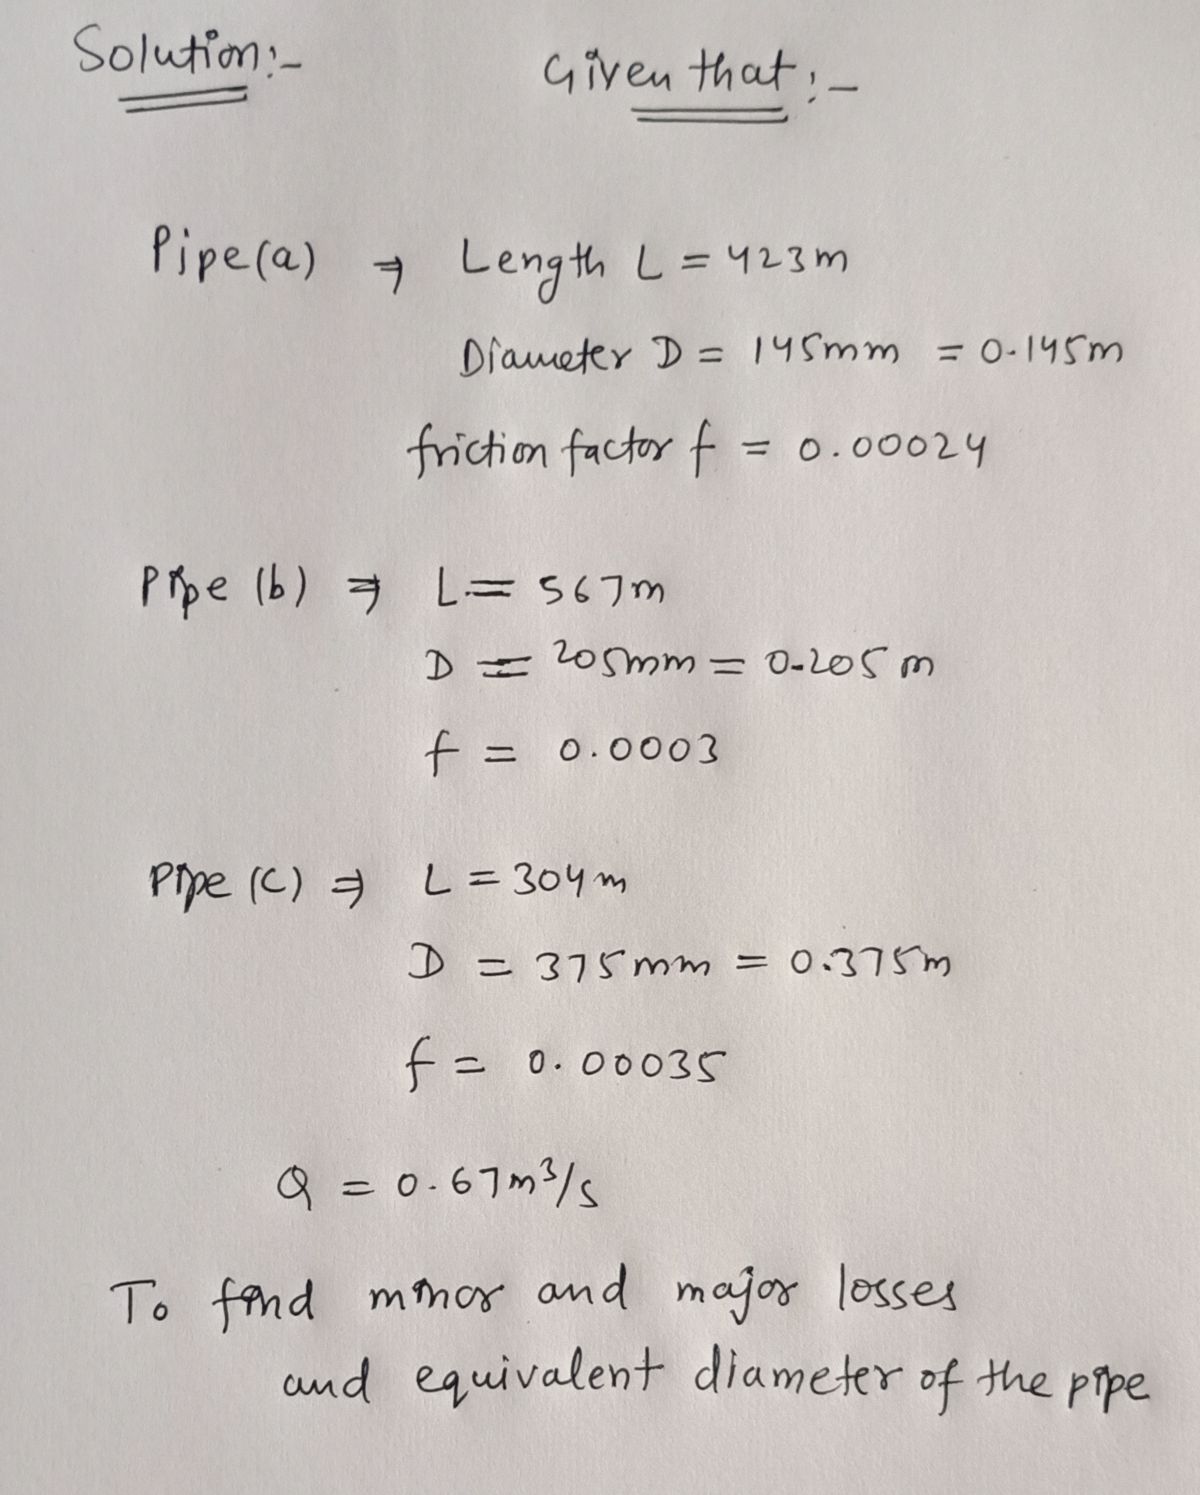 Solution:-
Given that:-
Pipe(a) ⇒ Length L = 423m
Diameter D = 145mm = 0.145m
friction factor f = 0.00024
Pipe (b) ⇒ L = 567m
D = 205mm = 0.205m
f = 0.0003
Pipe (c) ⇒ L = 304m
D = 375mm = 0.375m
f = 0.00035
Q = 0.67m³/s
To find minor and major losses
and equivalent diameter of the pipe